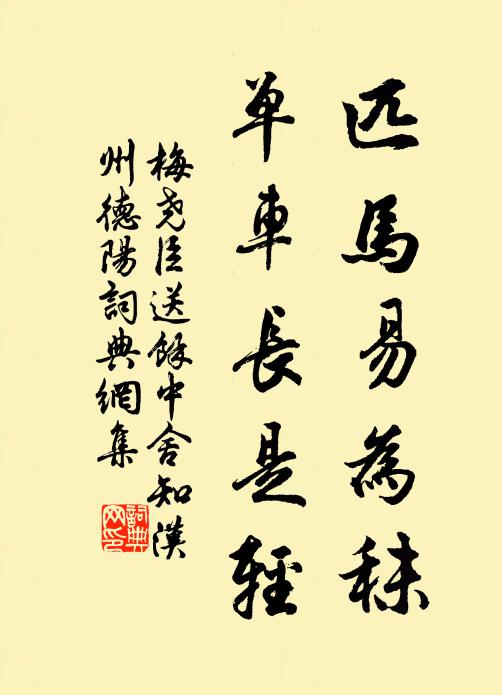 匹馬易為秣
單車長是輕
梅堯臣送餘中舍知漢
州德陽詞典網集
詞典
网印